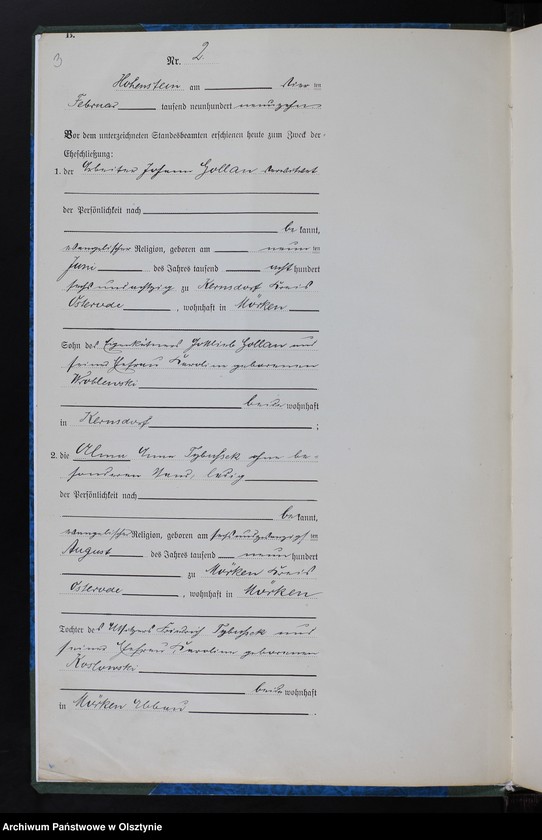 B.
3
Nr. 2
Hohenstein am vier ten
Februar tausend neunhundert neunzehn
Vor dem unterzeichneten Standesbeamten erschienen heute zum Zweck der
Eheschließung:
1. der Arbeiter Johann Gollan verwitwet
der Persönlichkeit nach
be kannt,
evangelischer Religion, geboren am neun ten
Juni des Jahres tausend acht hundert
sechs und achtzig zu Kernsdorf Kreis
Osterode, wohnhaft in Mörken
Sohn des Eigenkätners Gottlieb Gollan und
seiner Ehefrau Karoline geborenen
Woblewski
beide wohnhaft
in Kernsdorf ;
2. die Alma Anna ohne be-
sonderen Stand, ledig
der Persönlichkeit nach
be kannt,
evangelischer Religion, geboren am sechsundzwanzigsten
August des Jahres tausend neun hundert
zu Mörken Kreis
Osterode, wohnhaft in Mörken
Tochter des Friedrich und
seiner Ehefrau Karoline geborenen
Koslowski
beide wohnhaft
in Mörken Abbau .
Archiwum Państwowe w Olsztynie